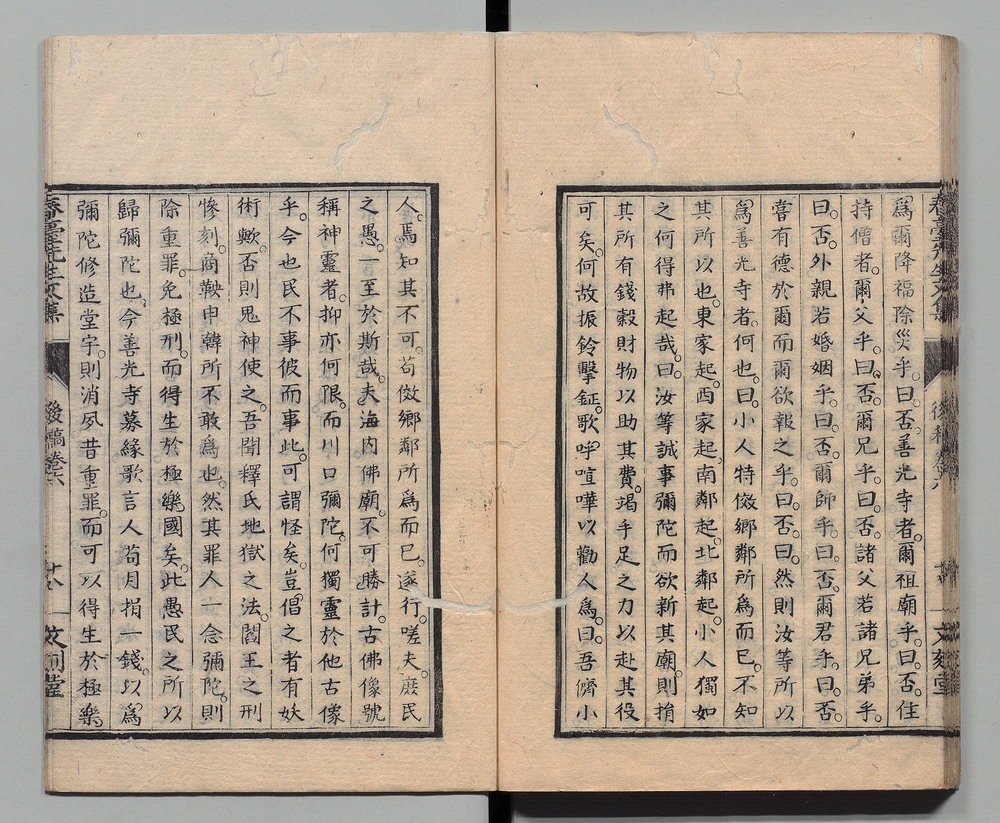 爲爾降福除災乎。曰。否。善光寺者。爾祖廟乎。曰。否。住
持僧者。爾父乎。曰。否。爾兄乎。曰。否。諸父若諸兄弟乎。
曰。否。外親若婚姻乎。曰。否。爾師乎。曰。否。爾君乎。曰。否。
嘗有德於爾而爾欲報之乎。曰。否。曰。然則汝等所以
爲善光寺者。何也。曰。小人特傚鄉鄰所爲而已。不知
其所以也。東家起。西家起。南鄰起。北鄰起。小人獨如
之何得弗起哉。曰。汝等誠事彌陀而欲新其廟。則捐
其所有錢穀財物以助其費。竭手足之力以赴其役
可矣。何故振鈴擊鉦。歌呼喧嘩以勸人爲。曰。吾儕小
人。焉知其不可。苟傚鄉鄰所爲而已。遂行。嗟夫。庶民
之愚。一至於斯哉。夫海內佛廟。不可勝計。古佛像號
稱神靈者。抑亦何限。而川口彌陀。何獨靈於他古像
乎。今也民不事彼而事此。可謂怪矣。豈倡之者有妖
術歟。否則鬼神使之。吾聞釋氏地獄之法。閻王之刑
慘刻。商鞅申韓所不敢爲也。然其罪人一念彌陀。則
除重罪。免極刑。而得生於極樂國矣。此愚民之所以
歸彌陀也。今善光寺募緣歌言人苟月捐一錢。以爲
彌陀修造堂宇。則消夙昔重罪。而可以得生於極樂。
春臺先生文集
後稿卷六
文刻堂